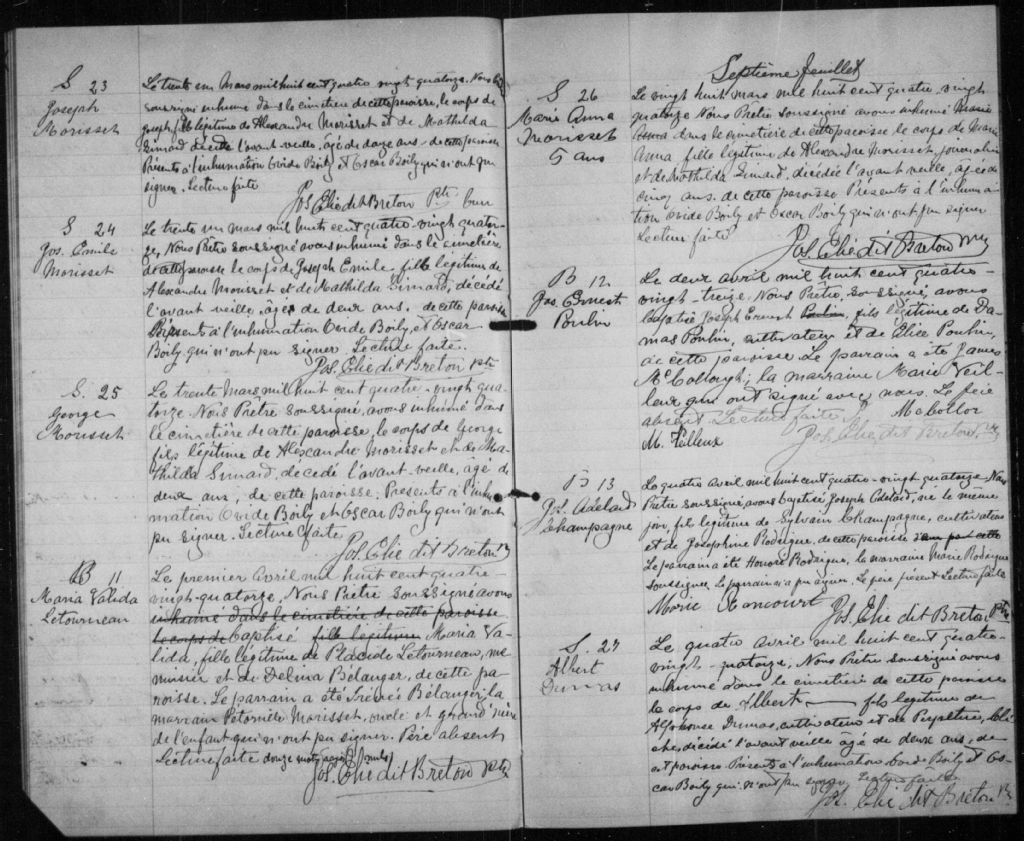 S 23
Joseph
Morisset
Le trente un Mars mil huit cent quatre vingt quatorze. Nous
soussigné inhumé dans le cimetière de cette paroisse, le corps de
Joseph, fils légitime de Alexandre Morisset et de Mathilda
Simard décédé l'avant-veille, âgé de douze ans. de cette paroisse
Présents à l'inhumation Ovide Boily et Oscar Boily qui n'ont pu
signer. Lecture faite
Jos. Elie dit Breton Ptre
S 24
Jos. Emile
Morisset
Le trente un mars mil huit cent quatre-vingt quator-
ze, Nous Prêtre soussigné avons inhumé dans le cimetière
de cette paroisse le corps de Joseph Emile, fils légitime de
Alexandre Morisset et de Mathilda Simard, décédé
l'avant veille, âgé de deux ans. de cette paroisse
Présents à l'inhumation Ovide Boily, et Oscar
Boily, qui n'ont pu signer. Lecture faite.
Jos. Elie dit Breton ptre
S. 25
George
Morisset
Le trente Mars mil huit cent quatre-vingt qua-
torze. Nous Prêtre soussigné, avons inhumé dans
le cimetière de cette paroisse, le corps de George
fils légitime de Alexandre Morisset et de Ma-
thilda Simard, décédé l'avant-veille, âgé de
deux ans, de cette paroisse. Présents à l'inhu-
mation Ovide Boily et Oscar Boily qui n'ont
pu signer. Lecture faite
Jos. Elie dit Breton
B 11
Maria Valida
Letourneau
Le premier Avril mil huit cent quatre-
vingt-quatorze, Nous Prêtre soussigné avons
inhumé dans le cimetière de cette paroisse
le corps de baptisé fille légitime Maria Va-
lida, fille légitime de Placide Letourneau, me-
nuisier et de Delma Bélanger, de cette pa-
roisse. Le parrain a été Bélanger, la
marraine Morisset, oncle et grand'mère
de l'enfant qui n'ont pu signer. Père absent
Lecture faite douze mots nuls
Jos. Elie dit Breton ptre
Septième feuillet
S 26
Marie Anna
Morisset
5 ans
Le vingt huit mars mil huit cent quatre-vingt
quatorze Nous Prêtre soussigné avons inhumé Marie
Anna dans le cimetière de cette paroisse le corps de Marie
Anna, fille légitime de Alexandre Morisset, journalier
et de Mathilda Simard, décédée l'avant veille, âgée de
cinq ans. de cette paroisse Présents à l'inhuma-
tion Ovide Boily et Oscar Boily qui n'ont pu signer
Lecture faite
Jos. Elie dit Breton ptre
B 12
Jos. Ernest
Poulin
Le deux avril mil huit cent quatre-
vingt-treize. Nous Prêtre, soussigné, avons
baptisé Joseph Ernest Poulin, fils légitime de Da-
mas Poulin, cultivateur et de Elise Poulin,
de cette paroisse Le parrain a été James
McCollough; la marraine Marie Veil-
leux qui ont signé avec nous. Le père
absent Lecture faite
M. Veilleux
Jos. Elie dit Breton, ptre
B 13
Jos. Adelard
Champagne
Le quatre avril mil huit cent quatre-vingt quatorze Nous
Prêtre soussigné, avons baptisé Joseph Adelard, né le même
jour, fils légitime de Sylvain Champagne, cultivateur
et de Josephine Rodrigue, de cette paroisse d'une part cette
Le parrain a été Honoré Rodrigue, la marraine Marie Rodrigue
soussignée. Le parrain n'a pu signer. Le père présent Lecture faite
Marie Rancourt
Jos. Elie dit Breton Ptre
S. 27
Albert
Dumas
Le quatre avril mil huit cent quatre-
vingt-quatorze, Nous Prêtre soussigné avons
inhumé dans le cimetière de cette paroisse
le corps de Albert fils légitime de
Alphonse Dumas, cultivateur et de
décédé l'avant veille âgé de deux ans, de
cet paroisse. Présents à l'inhumation Ovide Boily et Os-
car Boily qui n'ont pu signer Lecture faite
Jos. Elie dit Breton